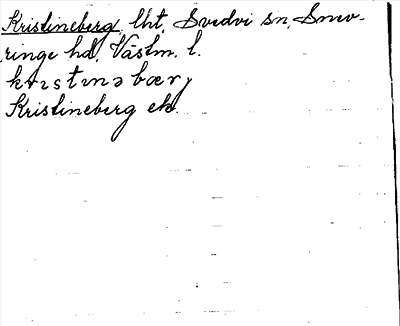 Kristineberg, lht, Svedvi sn, Snev-
ringe hd, Västm. l.
krɪstɪnəbærj
Kristineberg ek.